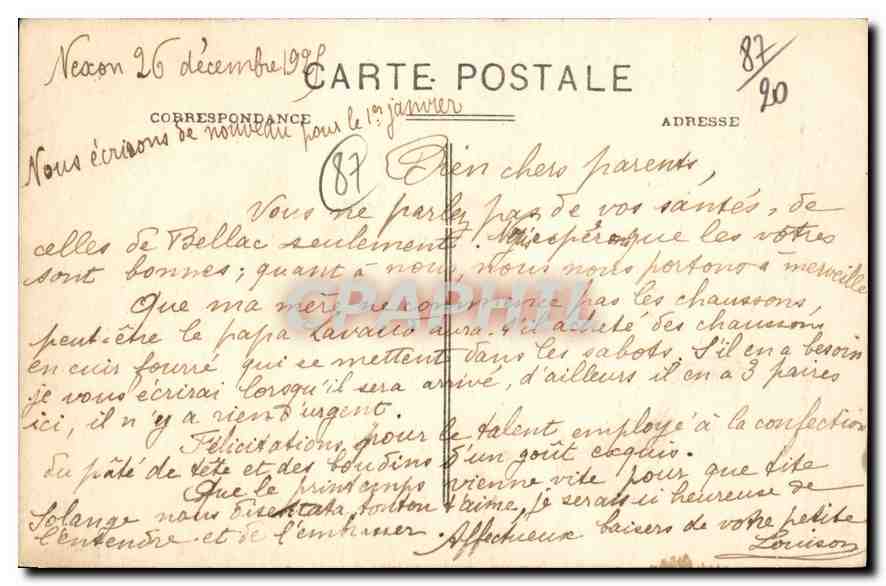 Nexon 26 décembre 192
87
20
CARTE POSTALE
CORRESPONDANCE
ADRESSE
Nous écrirons de nouveau pour le 1er janvier
87
Bien chers parents,
Vous ne parlez pas de vos santés, de
celles de Bellac seulement. espérons que les vôtres
sont bonnes; quant à nous, nous nous portons à merveille
Que ma mère ne commence pas les chaussons,
peut-être le papa Lavaud aura-t-il acheté des chaussons
en cuir fourré qui se mettent dans les sabots. S'il en a besoin
je vous écrirai lorsqu'il sera arrivé, d'ailleurs il en a 3 paires
ici, il n'y a rien d'urgent.
Félicitations pour le talent employé à la confection
du pâté de tête et des boudins d'un goût exquis.
Que le printemps vienne vite pour que tite
Solange nous dise tata, tonton t'aime, je serais si heureuse de
l'entendre et de l'embrasser. Affectueux baisers de votre petite
Louison
CPAPHIL